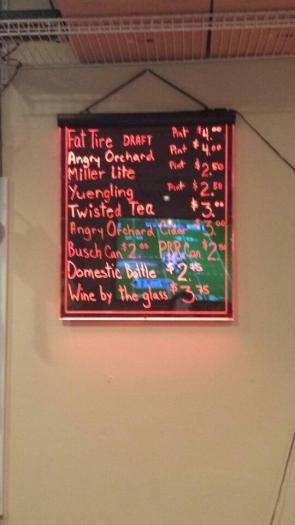 Fat Tire DRAFT Pint $4.00
Angry Orchard Pint $4.00
Miller Lite Pint $2.50
Yuengling Pint $2.50
Twisted Tea $3.00
Angry Orchard Cider $3.00
Busch Can $2.00 PBR Can $2.00
Domestic Bottle $2.75
Wine by the glass $3.75